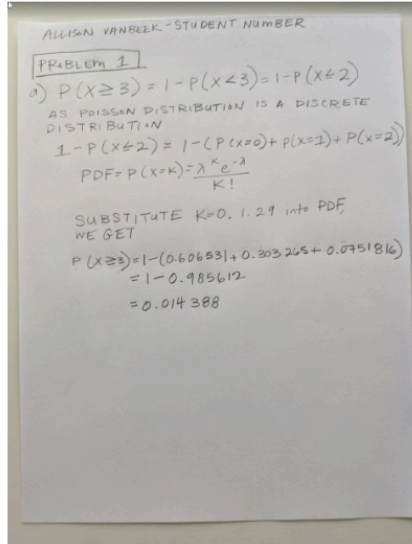 ALLISON VANBEEK - STUDENT NUMBER
PROBLEM 1
a) P(X≥3) = 1-P(X<3) = 1-P(X≤2)
AS POISSON DISTRIBUTION IS A DISCRETE
DISTRIBUTION
1-P(X≤2) = 1-(P(X=0)+P(X=1)+P(X=2))
PDF= P(X=K)= λ^K e^-λ / K!
SUBSTITUTE K=0.1.29 into PDF,
WE GET
P(X≥3)=1-(0.606531+0.303265+0.0751816)
=1-0.985612
=0.014388